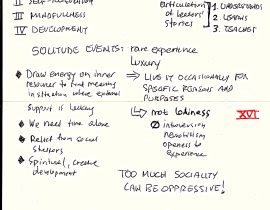 II SELF-
III MINDFULNESS
IV DEVELOPMENT
articulation
of leaders'
stories
1. UNDERSTANDS
2. LEARNS
3. TEACHER
SOLITUDE EVENTS: rare experience
luxury
Draw energy on inner
resources to find meaning
in situation where external
support is lacking
→ LIVE IT OCCASIONALLY FOR
SPECIFIC REASONS AND
PURPOSES
We need time alone
Relief from social
Spiritual, creative
development
↳ not loneliness
XVI
introversion
openness to
experience
TOO MUCH SOCIALITY
CAN BE OPPRESSIVE!